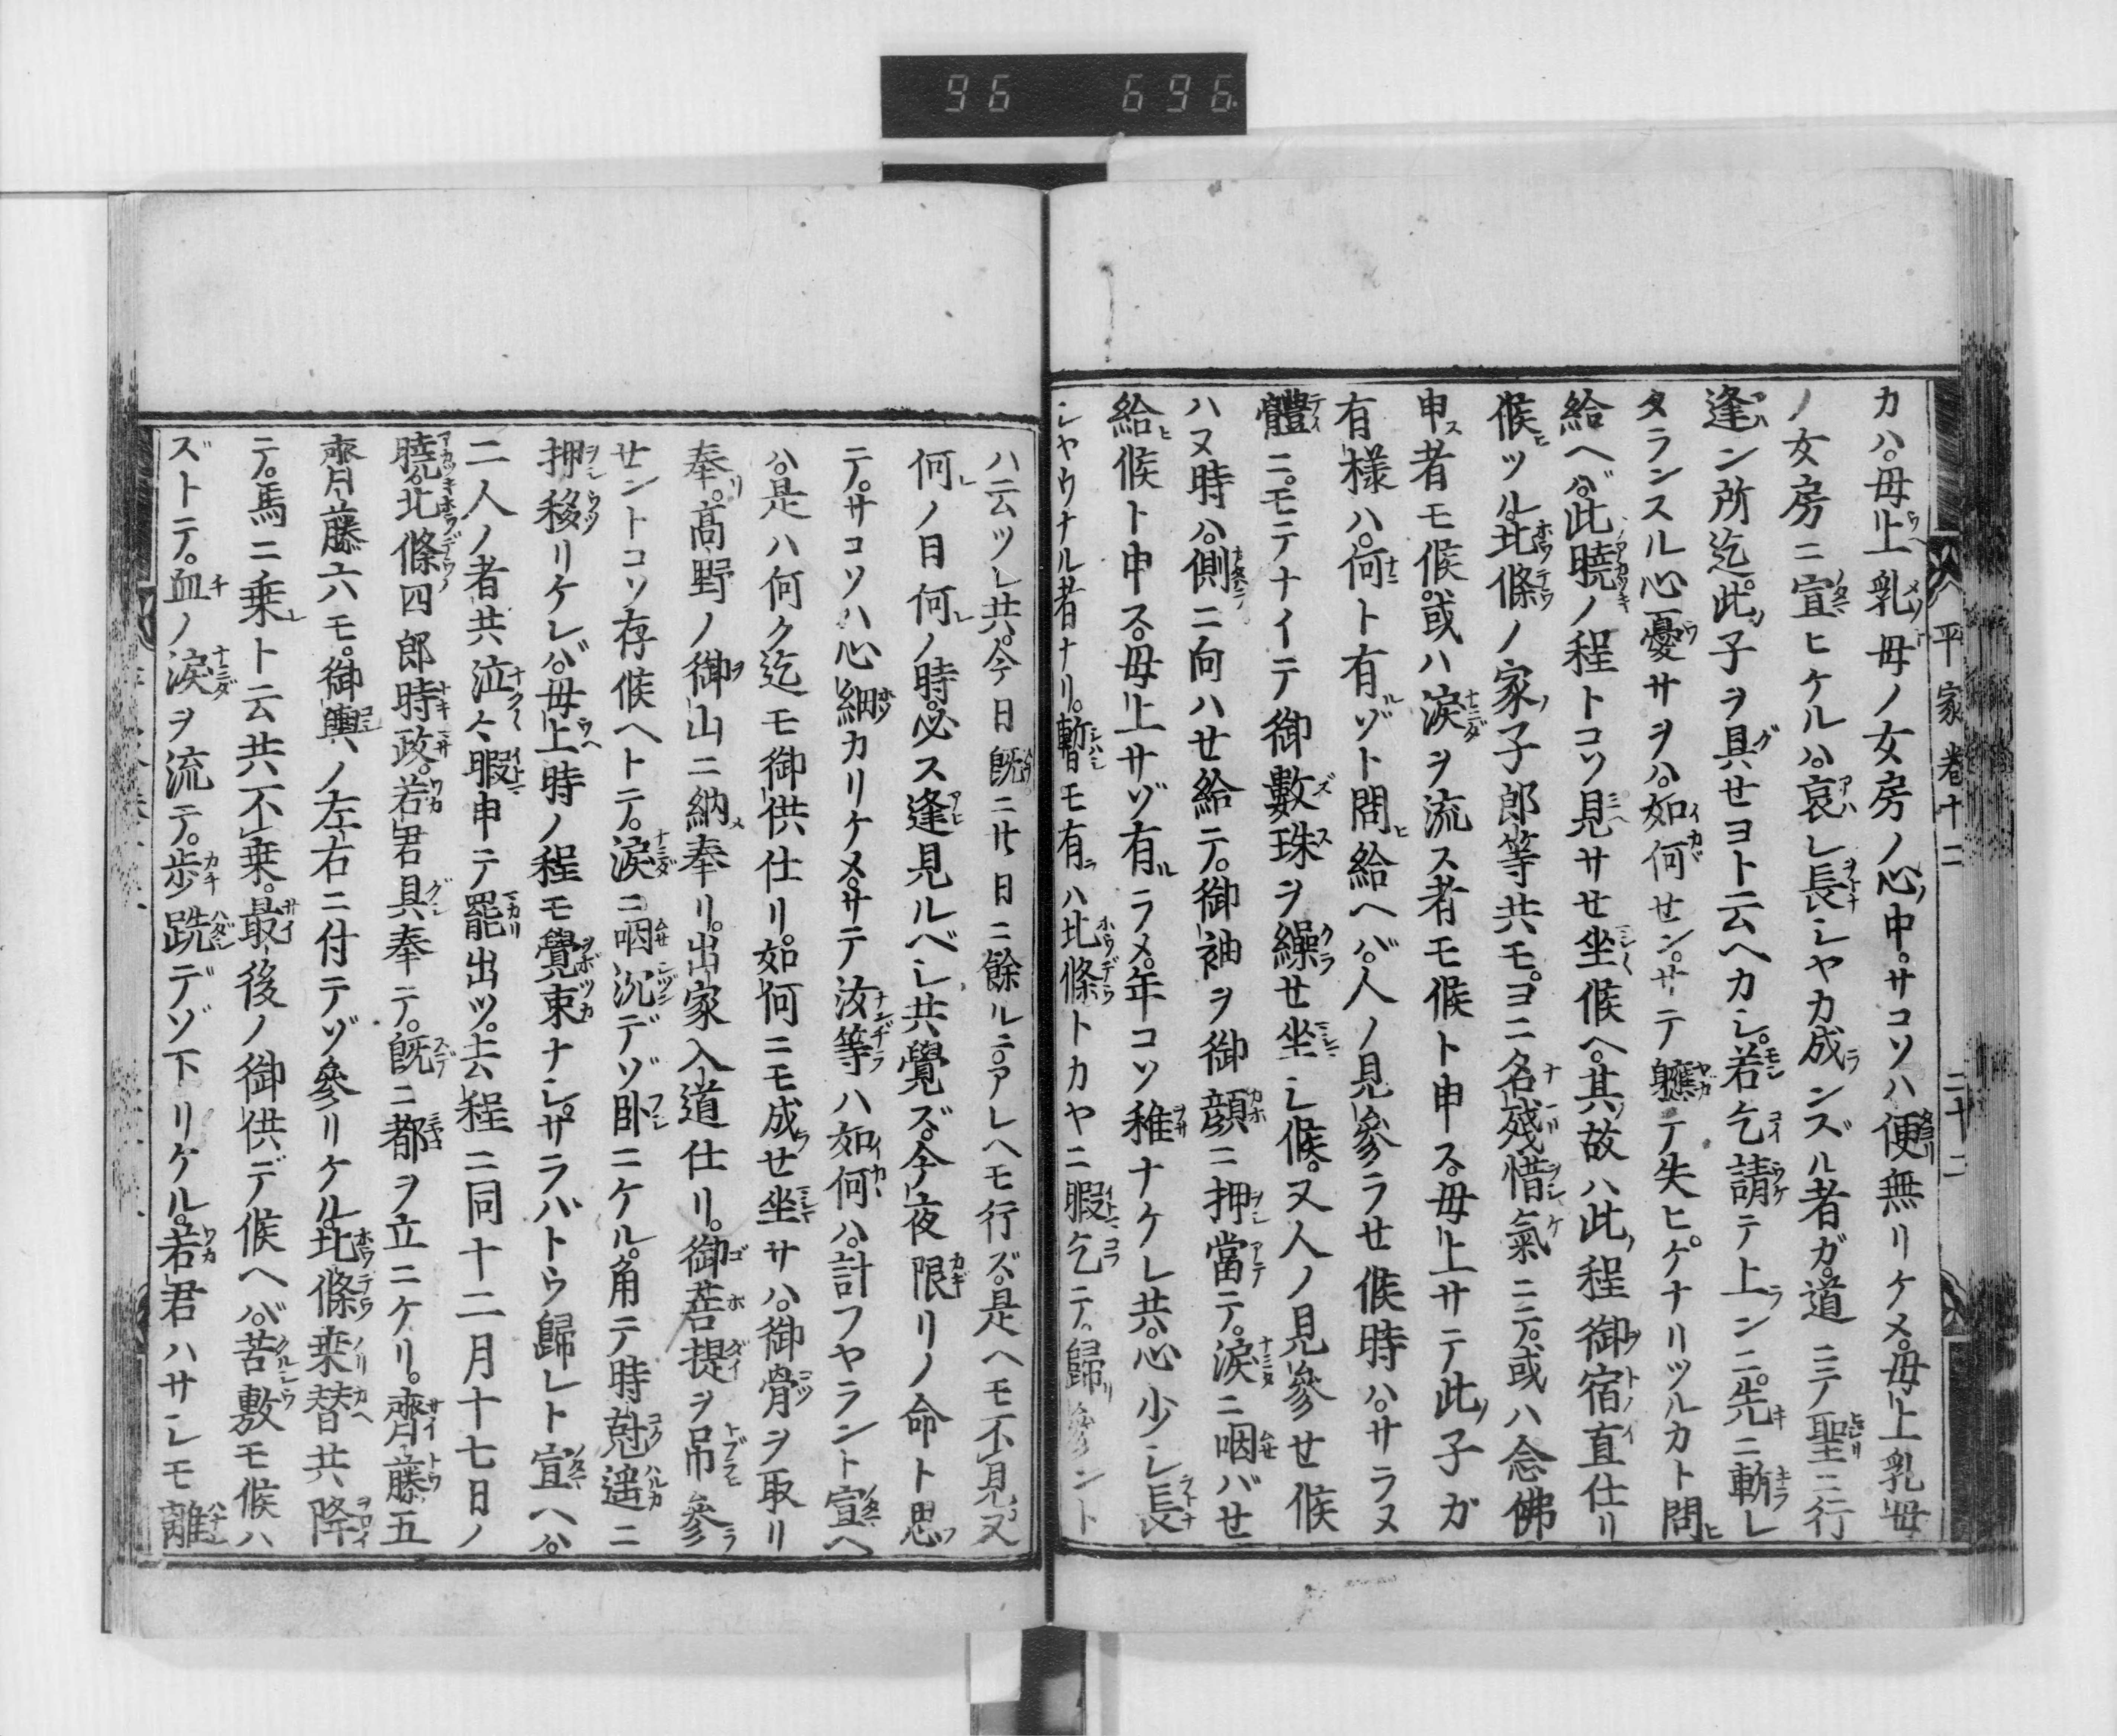 96 696
平家巻十二 二十二
カハ。母上乳母ノ女房ノ心中。サコソハ便無リケメ。母上乳母
ノ女房ニ宣ヒケルハ。哀レ長シヤカ成ンズル者ガ。道ニテ聖ニ行
逢ン所迄。此子ヲ具セヨト云ヘカシ。若乞請テ上ンニ。先ニ斬レ
タランスル心憂サヲハ。如何せン。サテ軈テ失ヒゲナリツルカト問
給ヘバ。此曉ノ程トコソ見サせ坐候ヘ。其故ハ此程御宿直仕リ
候ツル。北條ノ家子郎等共モ。ヨニ名殘惜氣ニテ。或ハ念佛
申者モ候。或ハ涙ヲ流ス者モ候ト申ス。母上サテ此子ガ
有様ハ。何ト有ゾト問給ヘバ。人ノ見參ラせ候時ハ。サラヌ
體ニ。モテナイテ御數珠ヲ繰せ坐シ候。又人ノ見參せ候
ハヌ時ハ。側ニ向ハせ給テ。御袖ヲ御顔ニ押當テ。涙ニ咽バせ
給候ト申ス。母上サゾ有ラメ。年コソ稚ナケレ共。心少シ長
シヤウナル者ナリ。暫モ有ハ北條トカヤニ暇乞テ。歸參ント
ハ云ツレ共。今日既ニ廿日ニ餘ルニ。アレヘモ行ズ。是ヘモ不見又
何ノ日何ノ時。必ス逢見ルベシ共覺ズ。今夜限リノ命ト思
テ。サコソハ心細カリケメ。サテ汝等ハ如何ハ。計フヤラント宣ヘ
ハ。是ハ何ク迄モ御供仕リ。如何ニモ成せ坐サハ。御骨ヲ取リ
奉。髙野ノ御山ニ納奉リ。出家入道仕リ。御菩提ヲ吊參
せントコソ存候ヘトテ。涙ニ咽沉デゾ卧ニケル。角テ時尅遥ニ
押移リケレバ。母上時ノ程モ覺束ナシ。サラバトウ歸レト宣ヘハ。
二人ノ者共泣々暇申テ罷出ツ。去程ニ同十二月十七日ノ
曉。北條四郎時政。若君具奉テ。既ニ都ヲ立ニケリ。齊藤五
齊藤六モ。御輿ノ左右ニ付テゾ參リケル。北條乗替共降
テ。馬ニ乗ト云共不乗。最後ノ御供デ候ヘバ。苦敷モ候ハ
ズトテ。血ノ涙ヲ流テ。歩跣デゾ下リケル。若君ハサシモ離